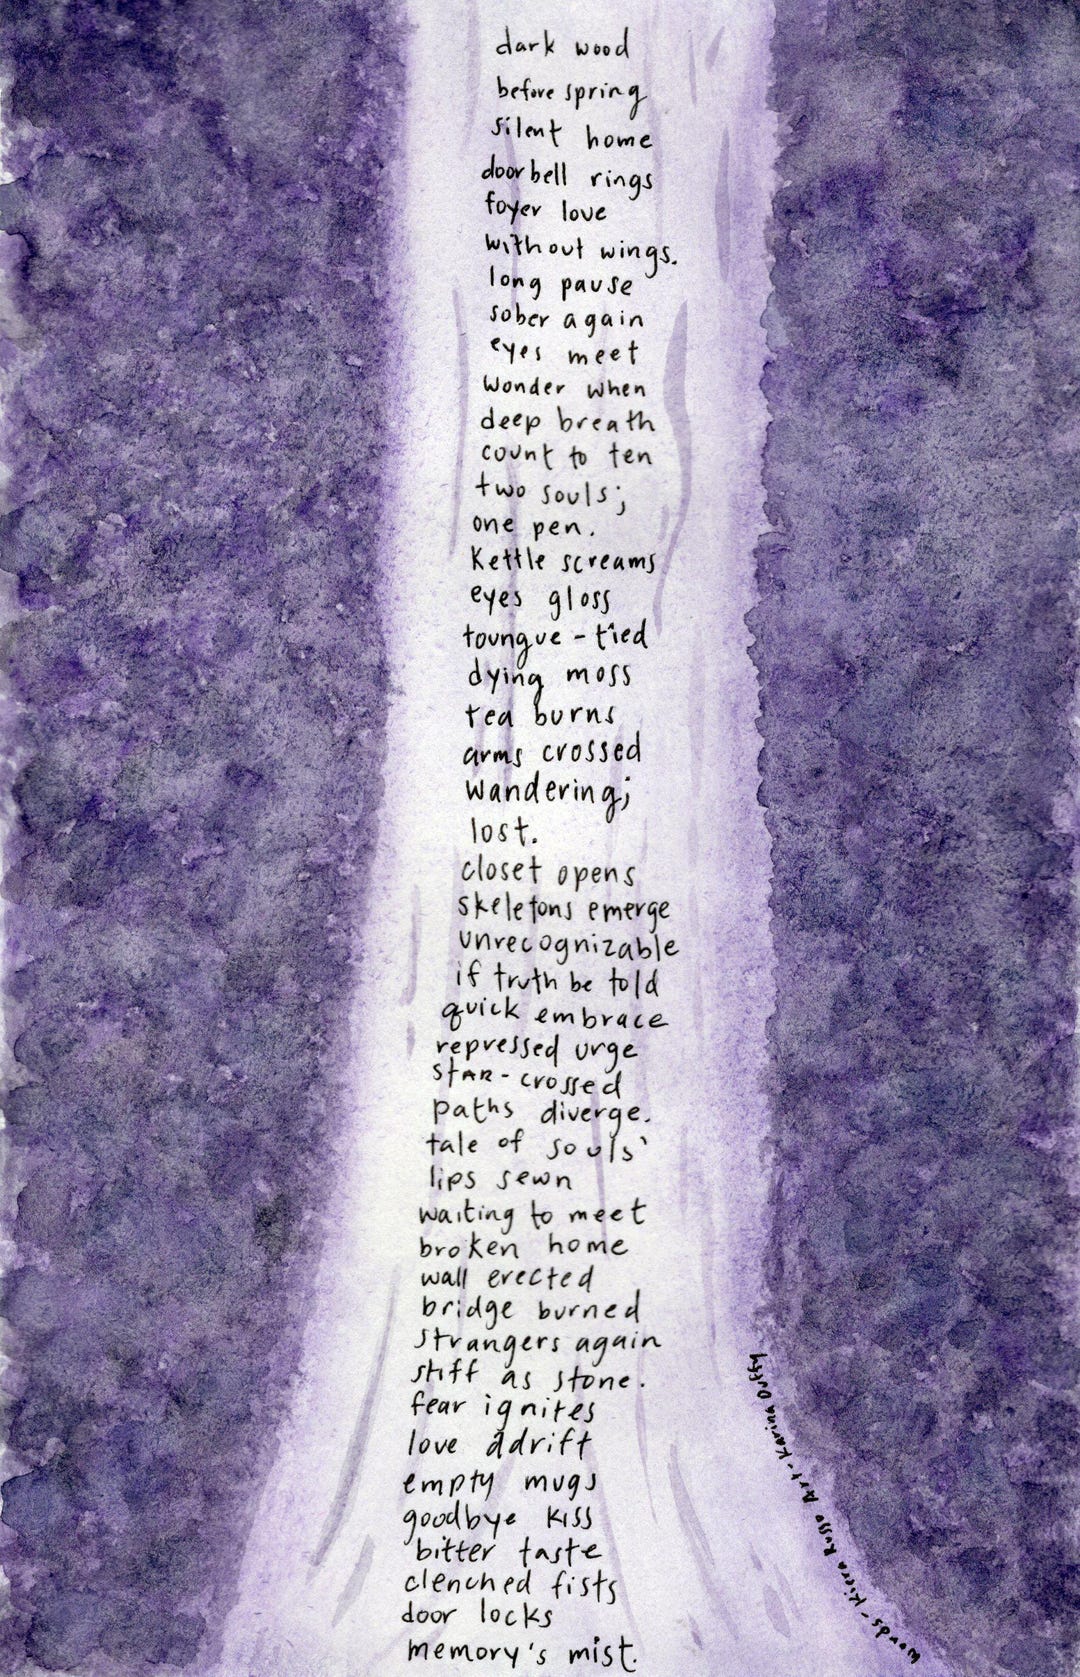 dark wood
before spring
silent home
doorbell rings
foyer love
without wings.
long pause
sober again
eyes meet
wonder when
deep breath
count to ten
two souls;
one pen.
Kettle screams
eyes gloss
toungue-tied
dying moss
tea burns
arms crossed
wandering;
lost.
closet opens
skeletons emerge
unrecognizable
if truth be told
quick embrace
repressed urge
stAR-crossed
paths diverge.
tale of souls'
lips sewn
waiting to meet
broken home
wall erected
bridge burned
strangers again
stiff as stone.
fear ignites
love adrift
empty mugs
goodbye kiss
bitter taste
clenched fists
door locks
memory's mist.
Words-Kiera Russo Art-Karina Duffy